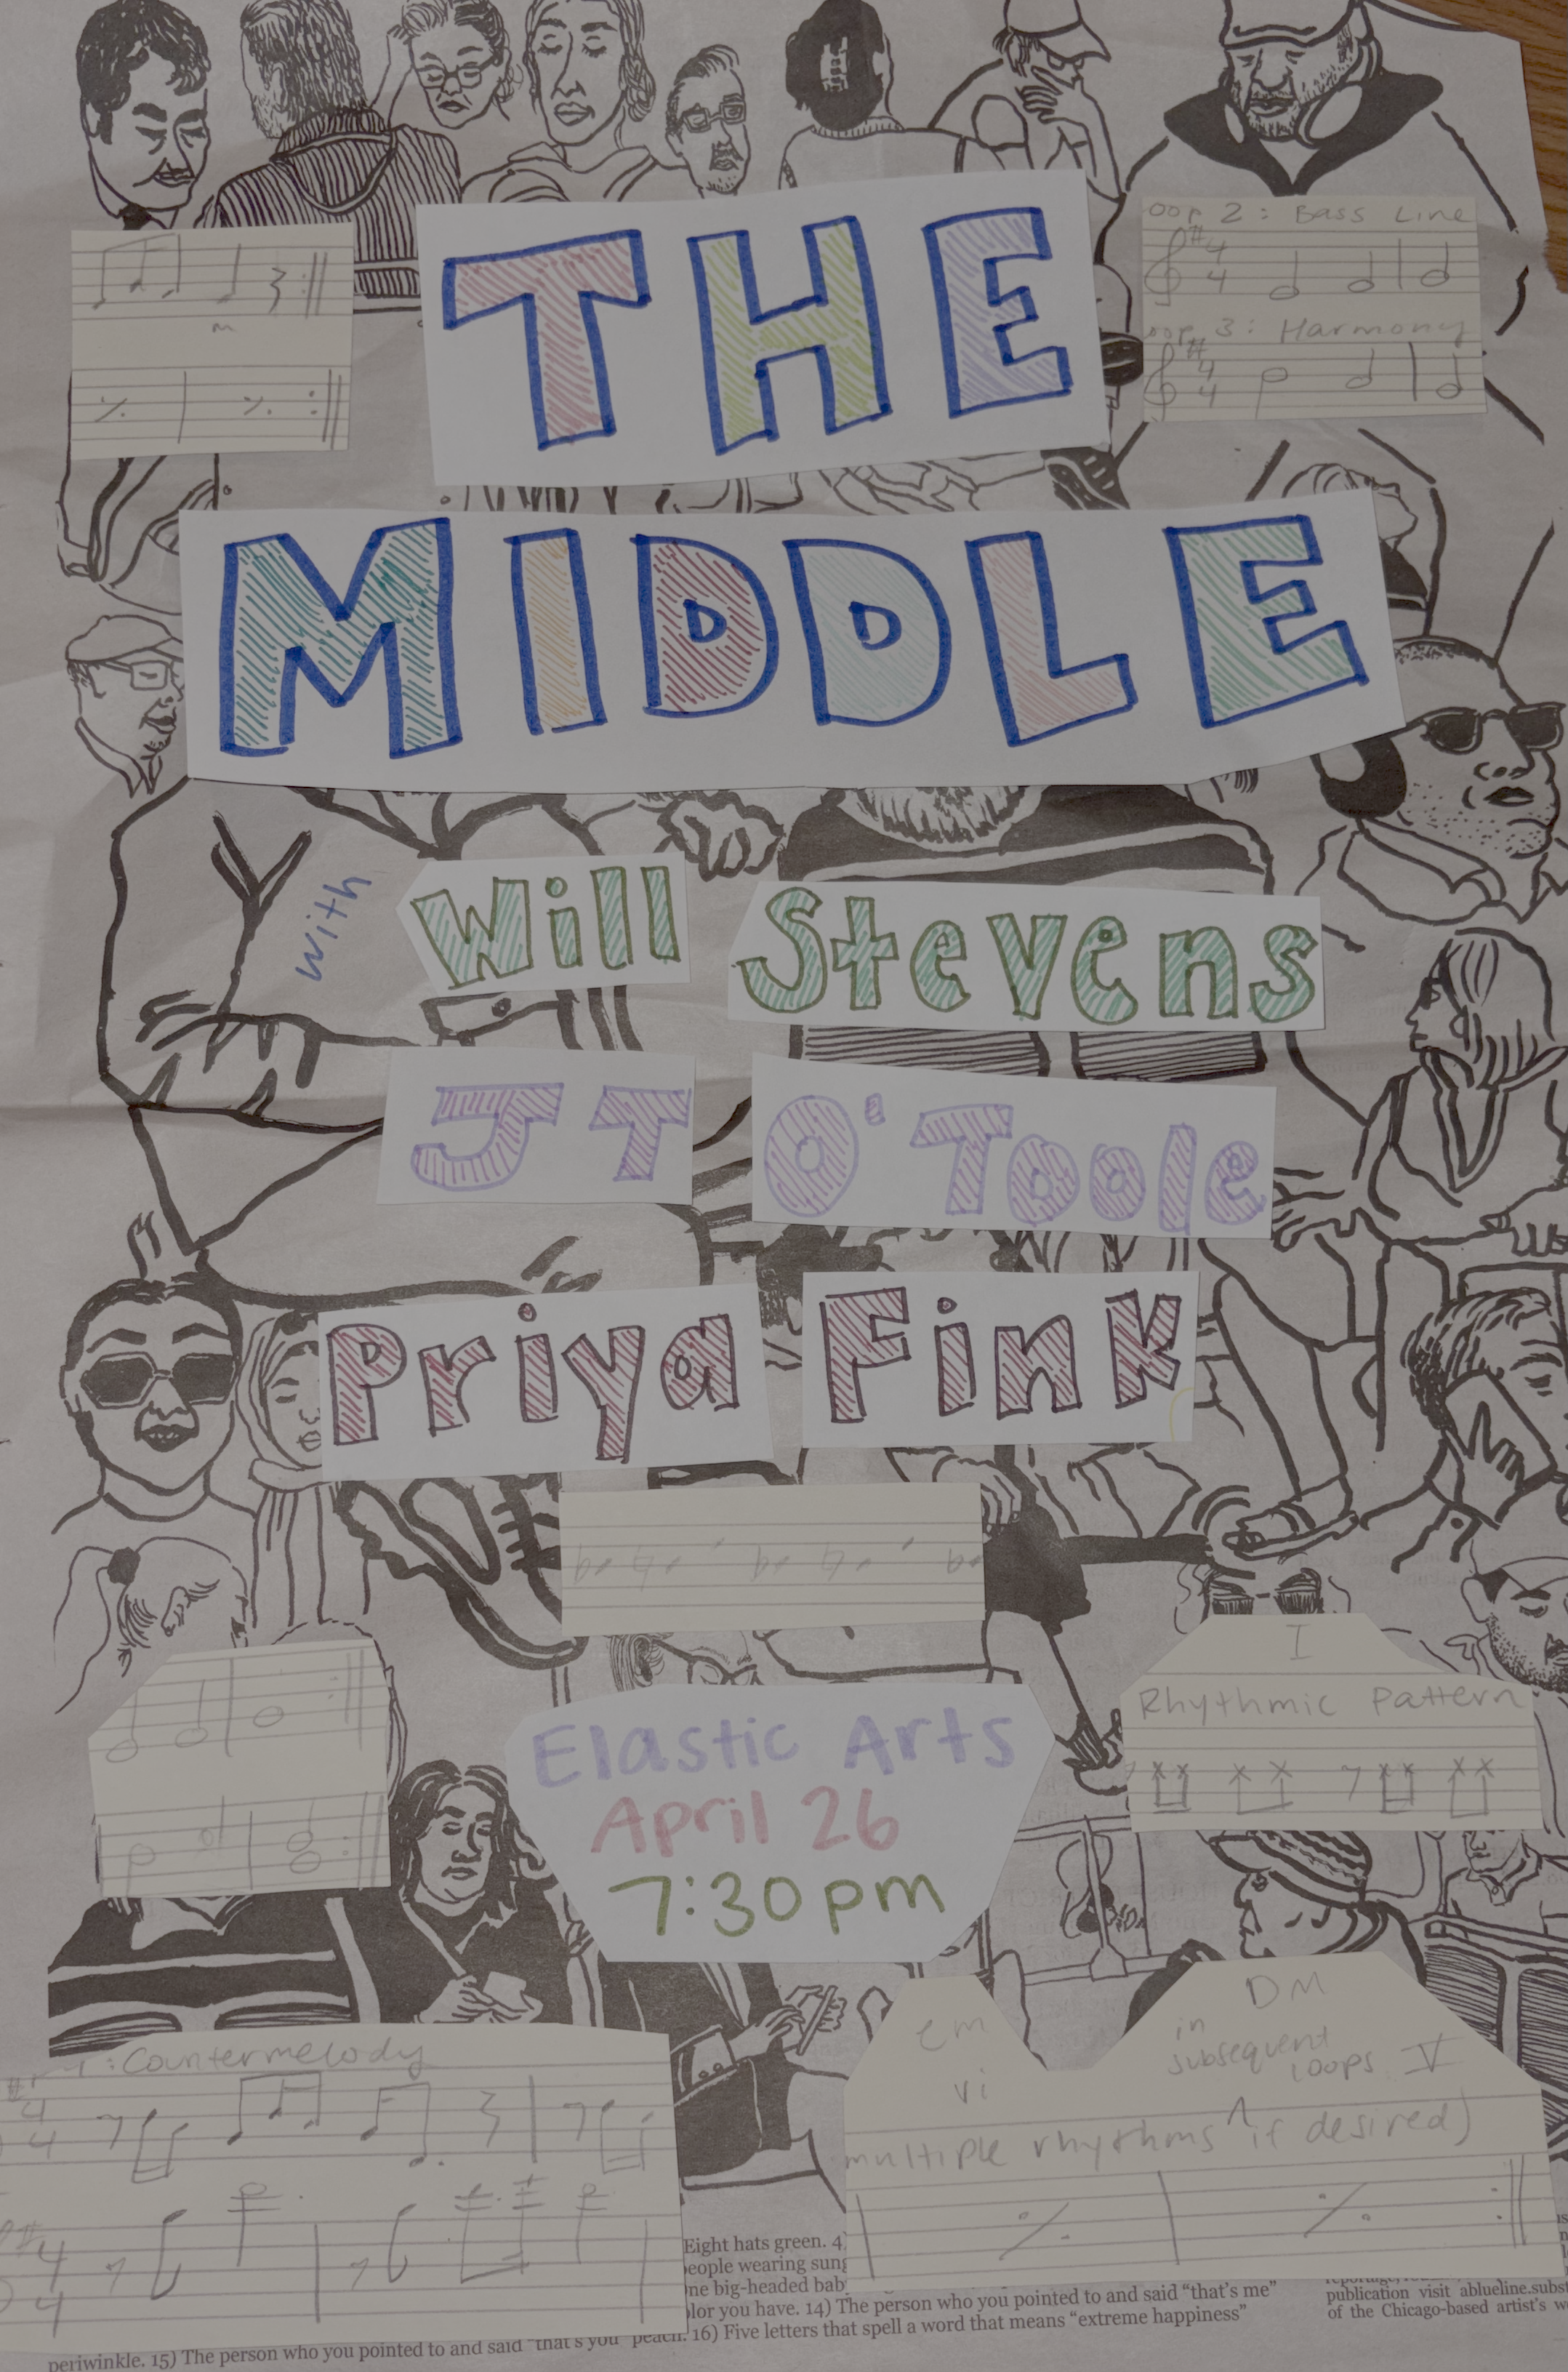 THE
oop 2: Bass Line
4
4
oop 3: Harmony
4
4
MIDDLE
with
Will Stevens
JT O'Toole
Priya Fink
I
Rhythmic Pattern
Elastic Arts
April 26
7:30 pm
em
DM
in
subsequent
loops V
vi
: Countermelody
4
4
multiple rhythms ^ if desired)
4
4
Eight hats green. 4)
people wearing sung
ne big-headed bab
lor you have. 14) The person who you pointed to and said “that’s me”
periwinkle. 15) The person who you pointed to and said “that’s you” peach. 16) Five letters that spell a word that means “extreme happiness”
publication visit ablueline.subst
of the Chicago-based artist’s w